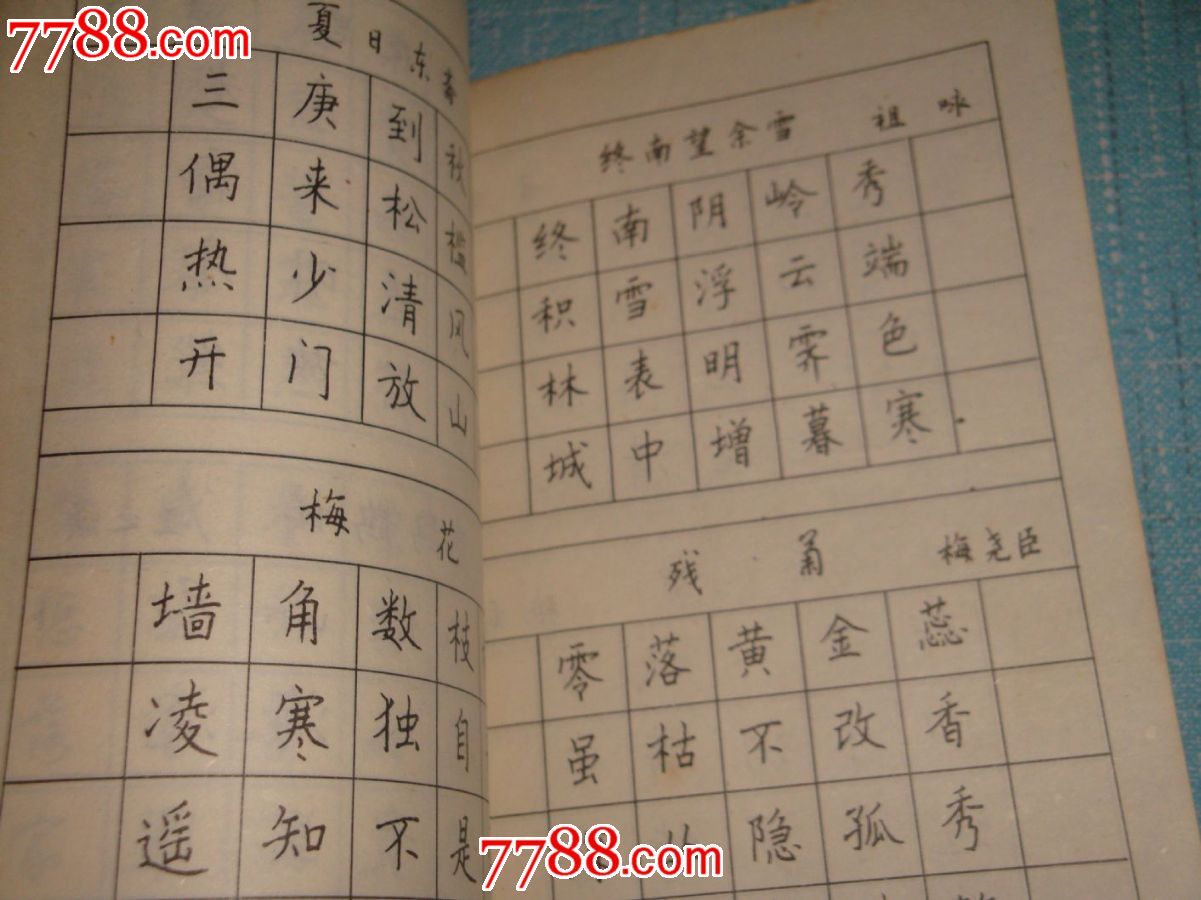 7788.com
夏日东斋
三庚到秋
偶来松槛
热少清风
开门放山
梅花
墙角数枝
凌寒独自
遥知不是
7788.com
终南望余雪 祖咏
终南阴岭秀
积雪浮云端
林表明霁色
城中增暮寒.
残菊 梅尧臣
零落黄金蕊
虽枯不改香
隐孤秀
7788.com